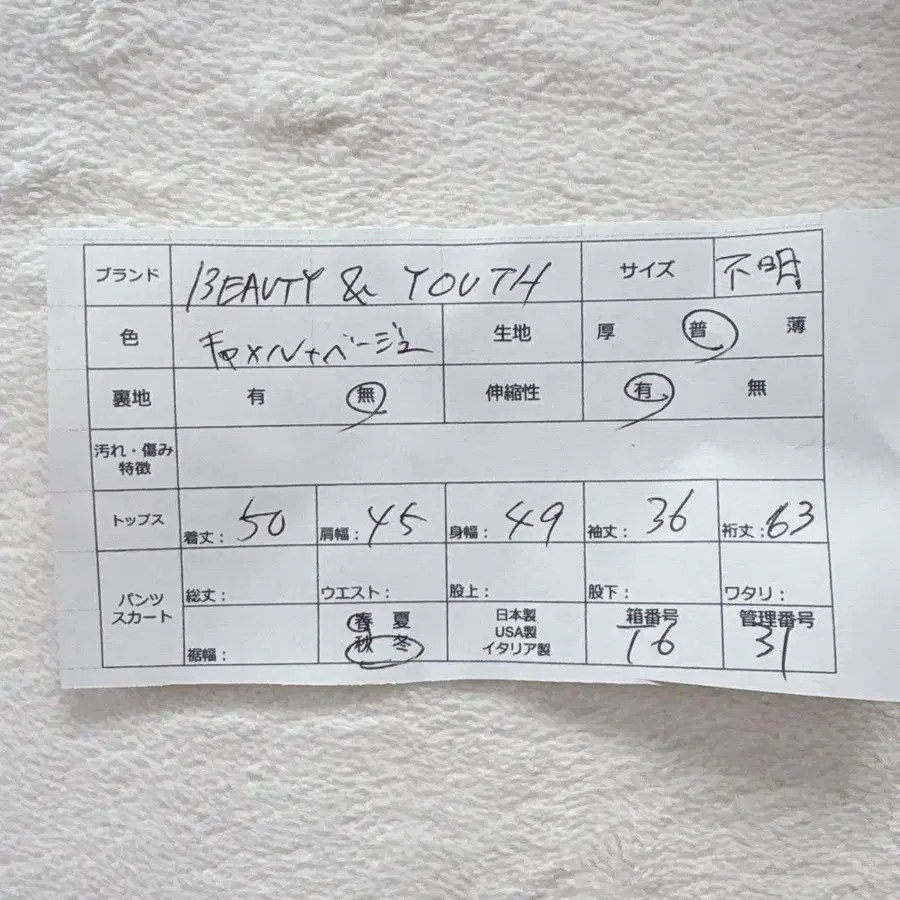 ブランド BEAUTY & YOUTH サイズ 不明
色 キャメル+ベージュ 生地 厚 普 薄
裏地 有 無 伸縮性 有 無
汚れ・傷み
特徴
トップス 着丈: 50 肩幅: 45 身幅: 49 袖丈: 36 裄丈: 63
パンツ
スカート
総丈: ウエスト: 股上: 股下: ワタリ:
裾幅:
春 夏
秋 冬
日本製
USA製
イタリア製
箱番号
16
管理番号
31